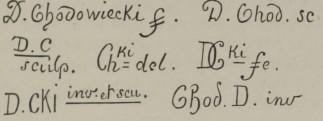 D. Chodowiecki f. D. Chod. sc
D. C sculp. Ch=ki del. DC=ki fe.
D. CKI inv. et scu. Chod. D. inv